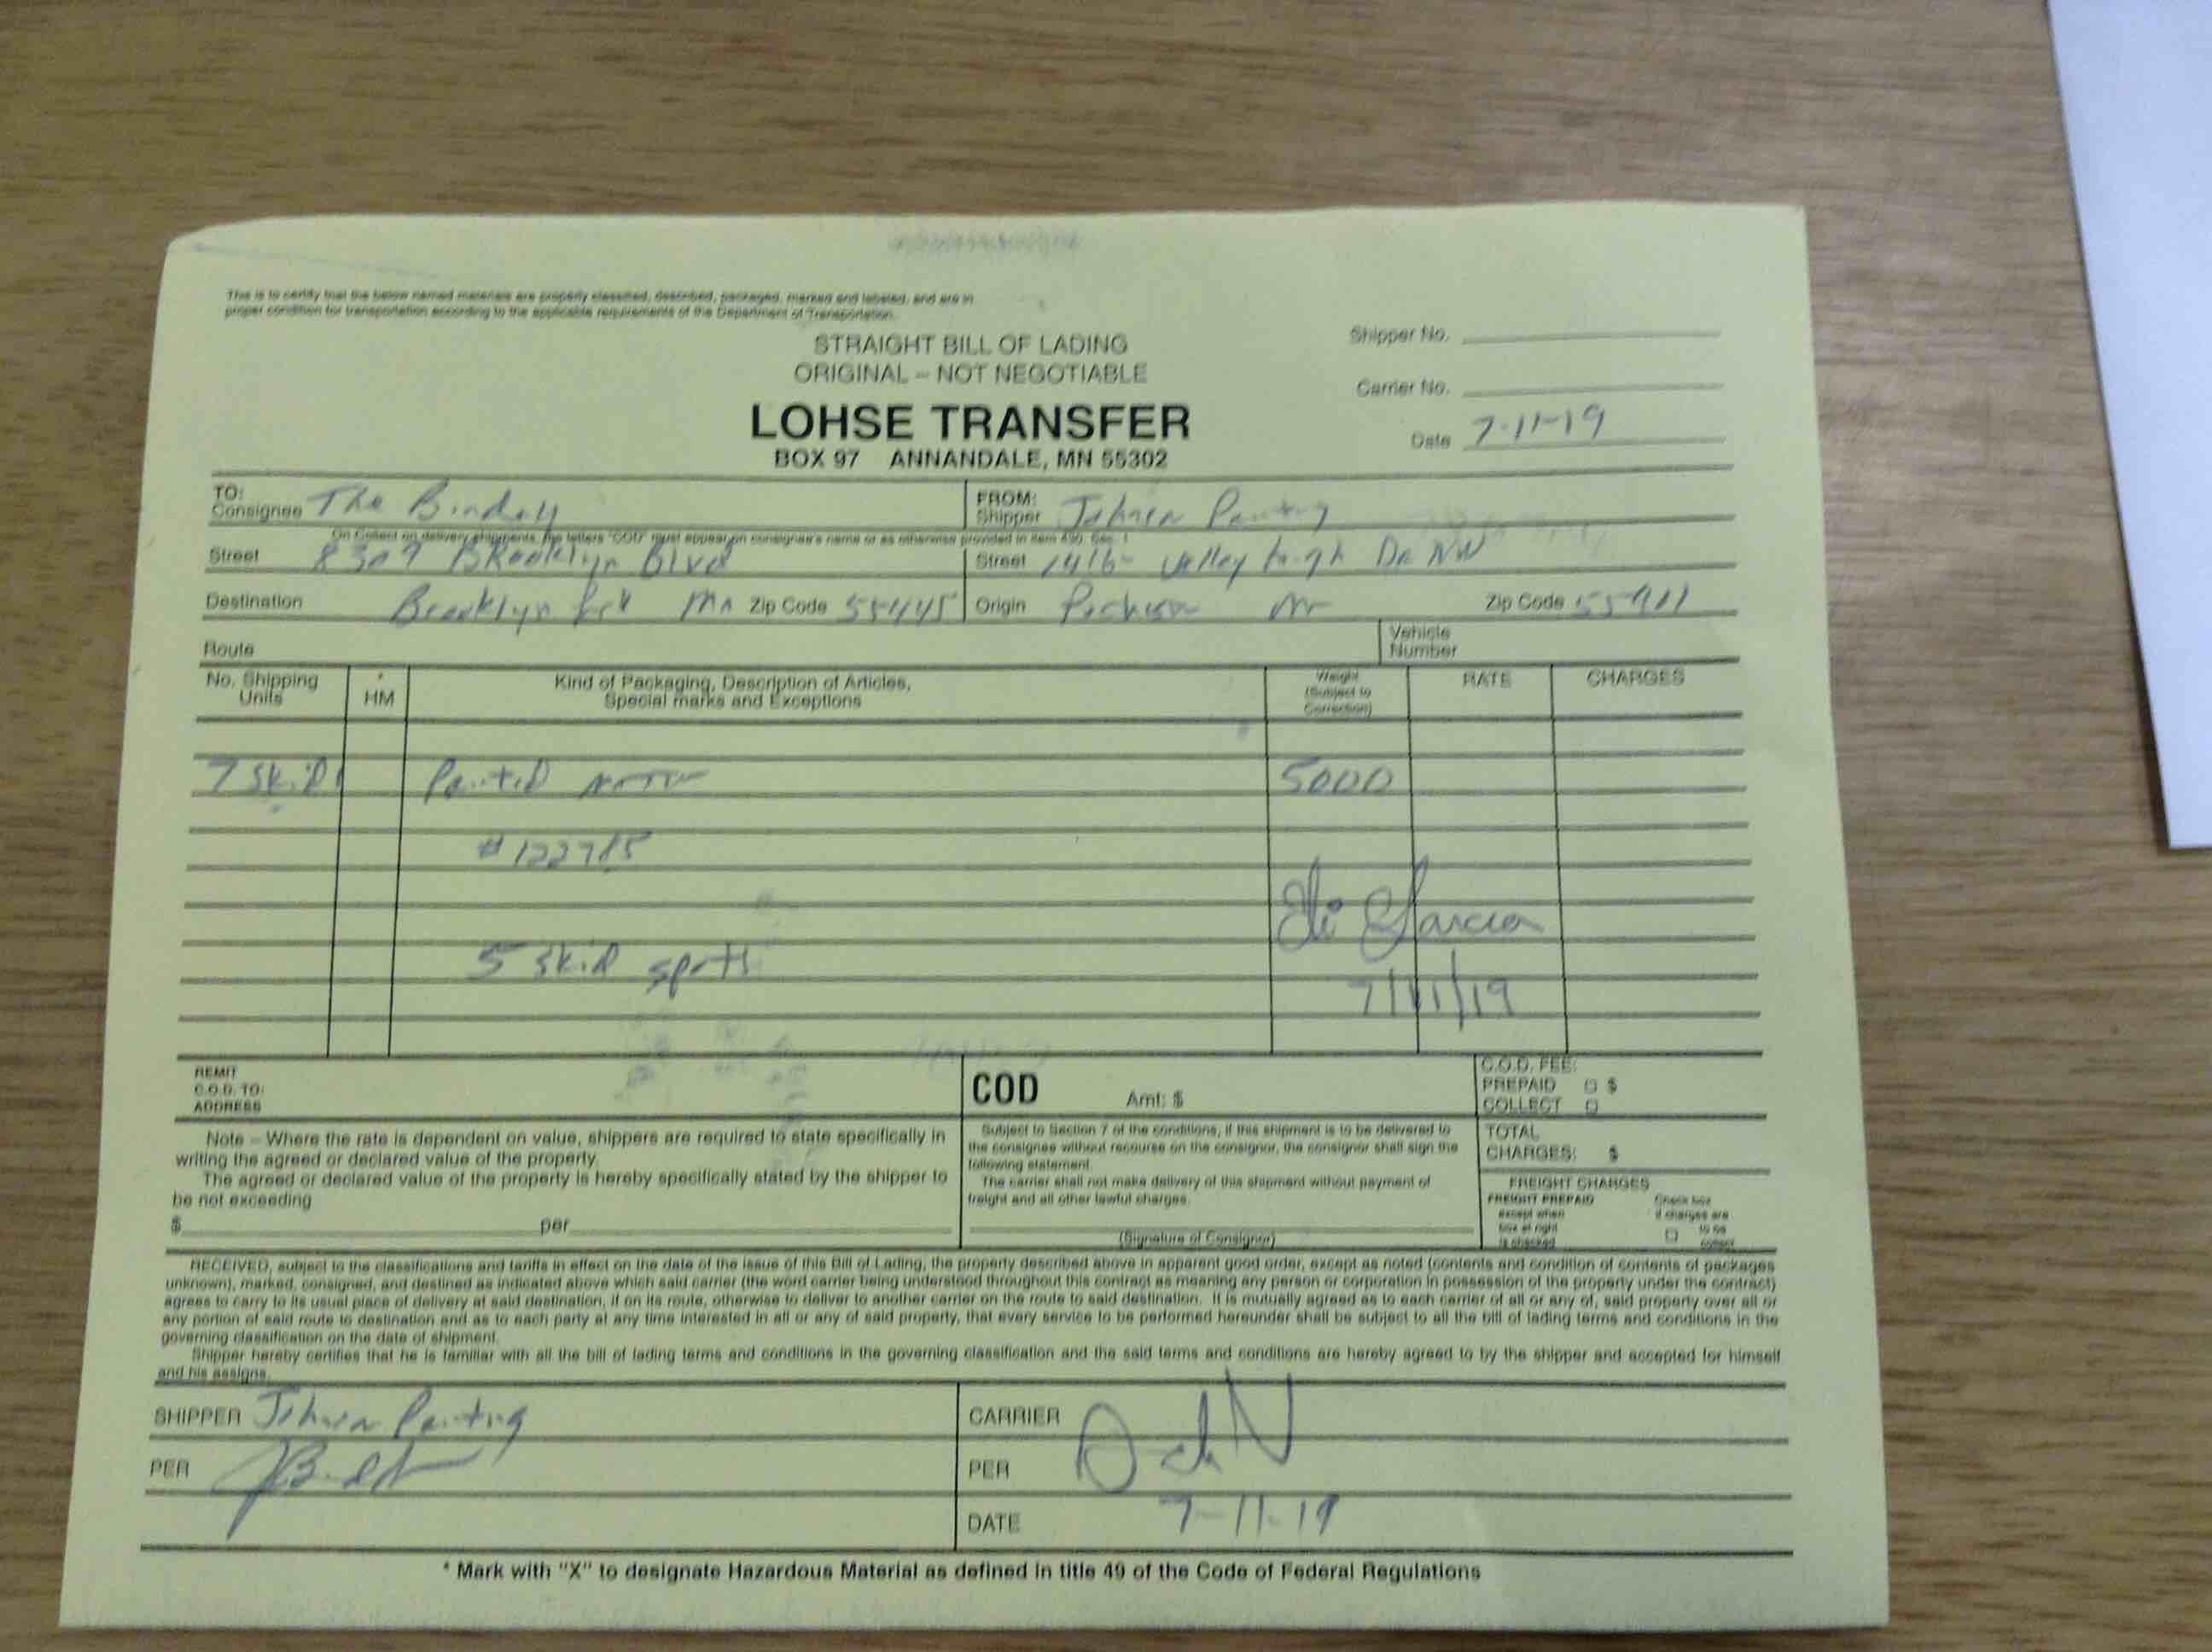 This is to certify that the below named materials are properly classified, described, packaged, marked and labeled, and are in
proper condition for transportation according to the applicable requirements of the Department of Transportation.
STRAIGHT BILL OF LADING
ORIGINAL – NOT NEGOTIABLE
LOHSE TRANSFER
BOX 97 ANNANDALE, MN 55302
Shipper No.
Carrier No.
Date 7-11-19
TO:
Consignee The Bindery
FROM:
Shipper Johnson Printing
On Collect on delivery shipments, the letters "COD" must appear on consignee's name or as otherwise provided in Item 430, Sec. 1
Street 8309 Brooklyn Blvd
Street 1416 Valley high Dr NW
Destination Brooklyn Park Mn Zip Code 55445
Origin Mn Zip Code 55901
Route
Vehicle
Number
No. Shipping
Units
*
HM
Kind of Packaging, Description of Articles,
Special marks and Exceptions
Weight
(Subject to
Correction)
RATE
CHARGES
7 Skid Printed 5000
#122785
Eli Garcia
5 Skid spots
7/11/19
REMIT
C.O.D. TO:
ADDRESS
COD Amt: $
C.O.D. FEE:
PREPAID $
COLLECT
Note – Where the rate is dependent on value, shippers are required to state specifically in
writing the agreed or declared value of the property.
The agreed or declared value of the property is hereby specifically stated by the shipper to
be not exceeding
$ per
Subject to Section 7 of the conditions, if this shipment is to be delivered to
the consignee without recourse on the consignor, the consignor shall sign the
following statement.
The carrier shall not make delivery of this shipment without payment of
freight and all other lawful charges.
(Signature of Consignor)
TOTAL
CHARGES: $
FREIGHT CHARGES
FREIGHT PREPAID
except when
box at right
is checked
Check box
if charges are
to be
collect
RECEIVED, subject to the classifications and tariffs in effect on the date of the issue of this Bill of Lading, the property described above in apparent good order, except as noted (contents and condition of contents of packages
unknown), marked, consigned, and destined as indicated above which said carrier (the word carrier being understood throughout this contract as meaning any person or corporation in possession of the property under the contract)
agrees to carry to its usual place of delivery at said destination, if on its route, otherwise to deliver to another carrier on the route to said destination. It is mutually agreed as to each carrier of all or any of, said property over all or
any portion of said route to destination and as to each party at any time interested in all or any of said property, that every service to be performed hereunder shall be subject to all the bill of lading terms and conditions in the
governing classification on the date of shipment.
Shipper hereby certifies that he is familiar with all the bill of lading terms and conditions in the governing classification and the said terms and conditions are hereby agreed to by the shipper and accepted for himself
and his assigns.
SHIPPER Johnson Printing
CARRIER
PER
PER
DATE 7-11-19
* Mark with "X" to designate Hazardous Material as defined in title 49 of the Code of Federal Regulations